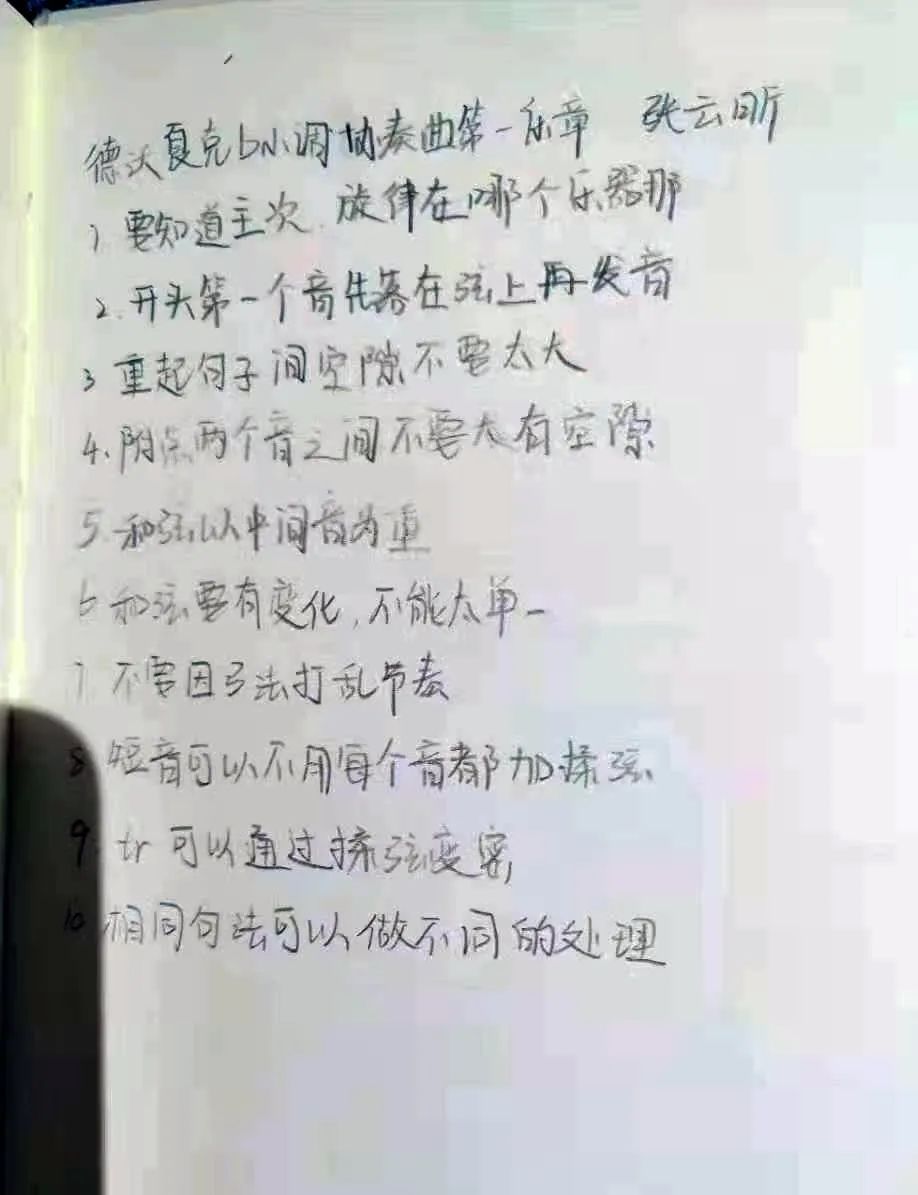 德沃夏克b小调协奏曲第一乐章 张云昕
1 要知道主次.旋律在哪个乐器那
2.开头第一个音先落在弦上再发音
3 重起句子间空隙不要太大
4.附点两个音之间不要太有空隙
5.和弦以中间音为重
6 和弦要有变化,不能太单一
7.不要因弓法打乱节奏
8 短音可以不用每个音都加揉弦
9.tr可以通过揉弦变密
10 相同句法可以做不同的处理